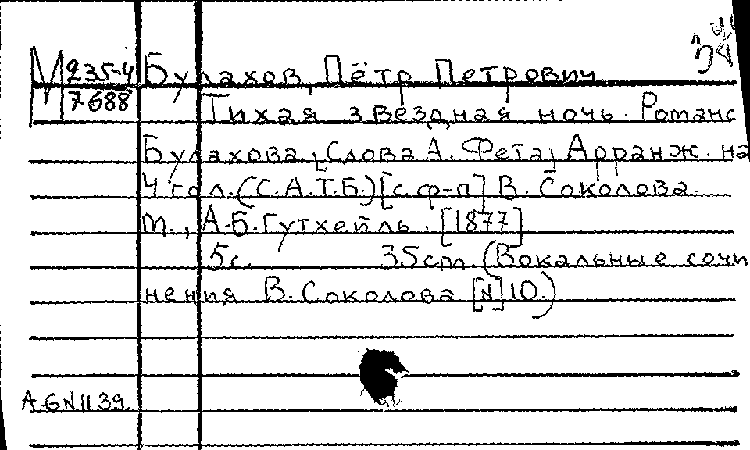 М 235-4 Булахов, Пётр Петрович
7688 Тихая звёздная ночь. Романс
Булахова, [слова А. Фета] Арранж. на
4 гол. (С.А.Т.Б.) [с ф-п] В. Соколова.
м., А.Б. Гутхейль. [1877]
5с. 35cm. (Вокальные сочи
нения В. Соколова [N] 10.)